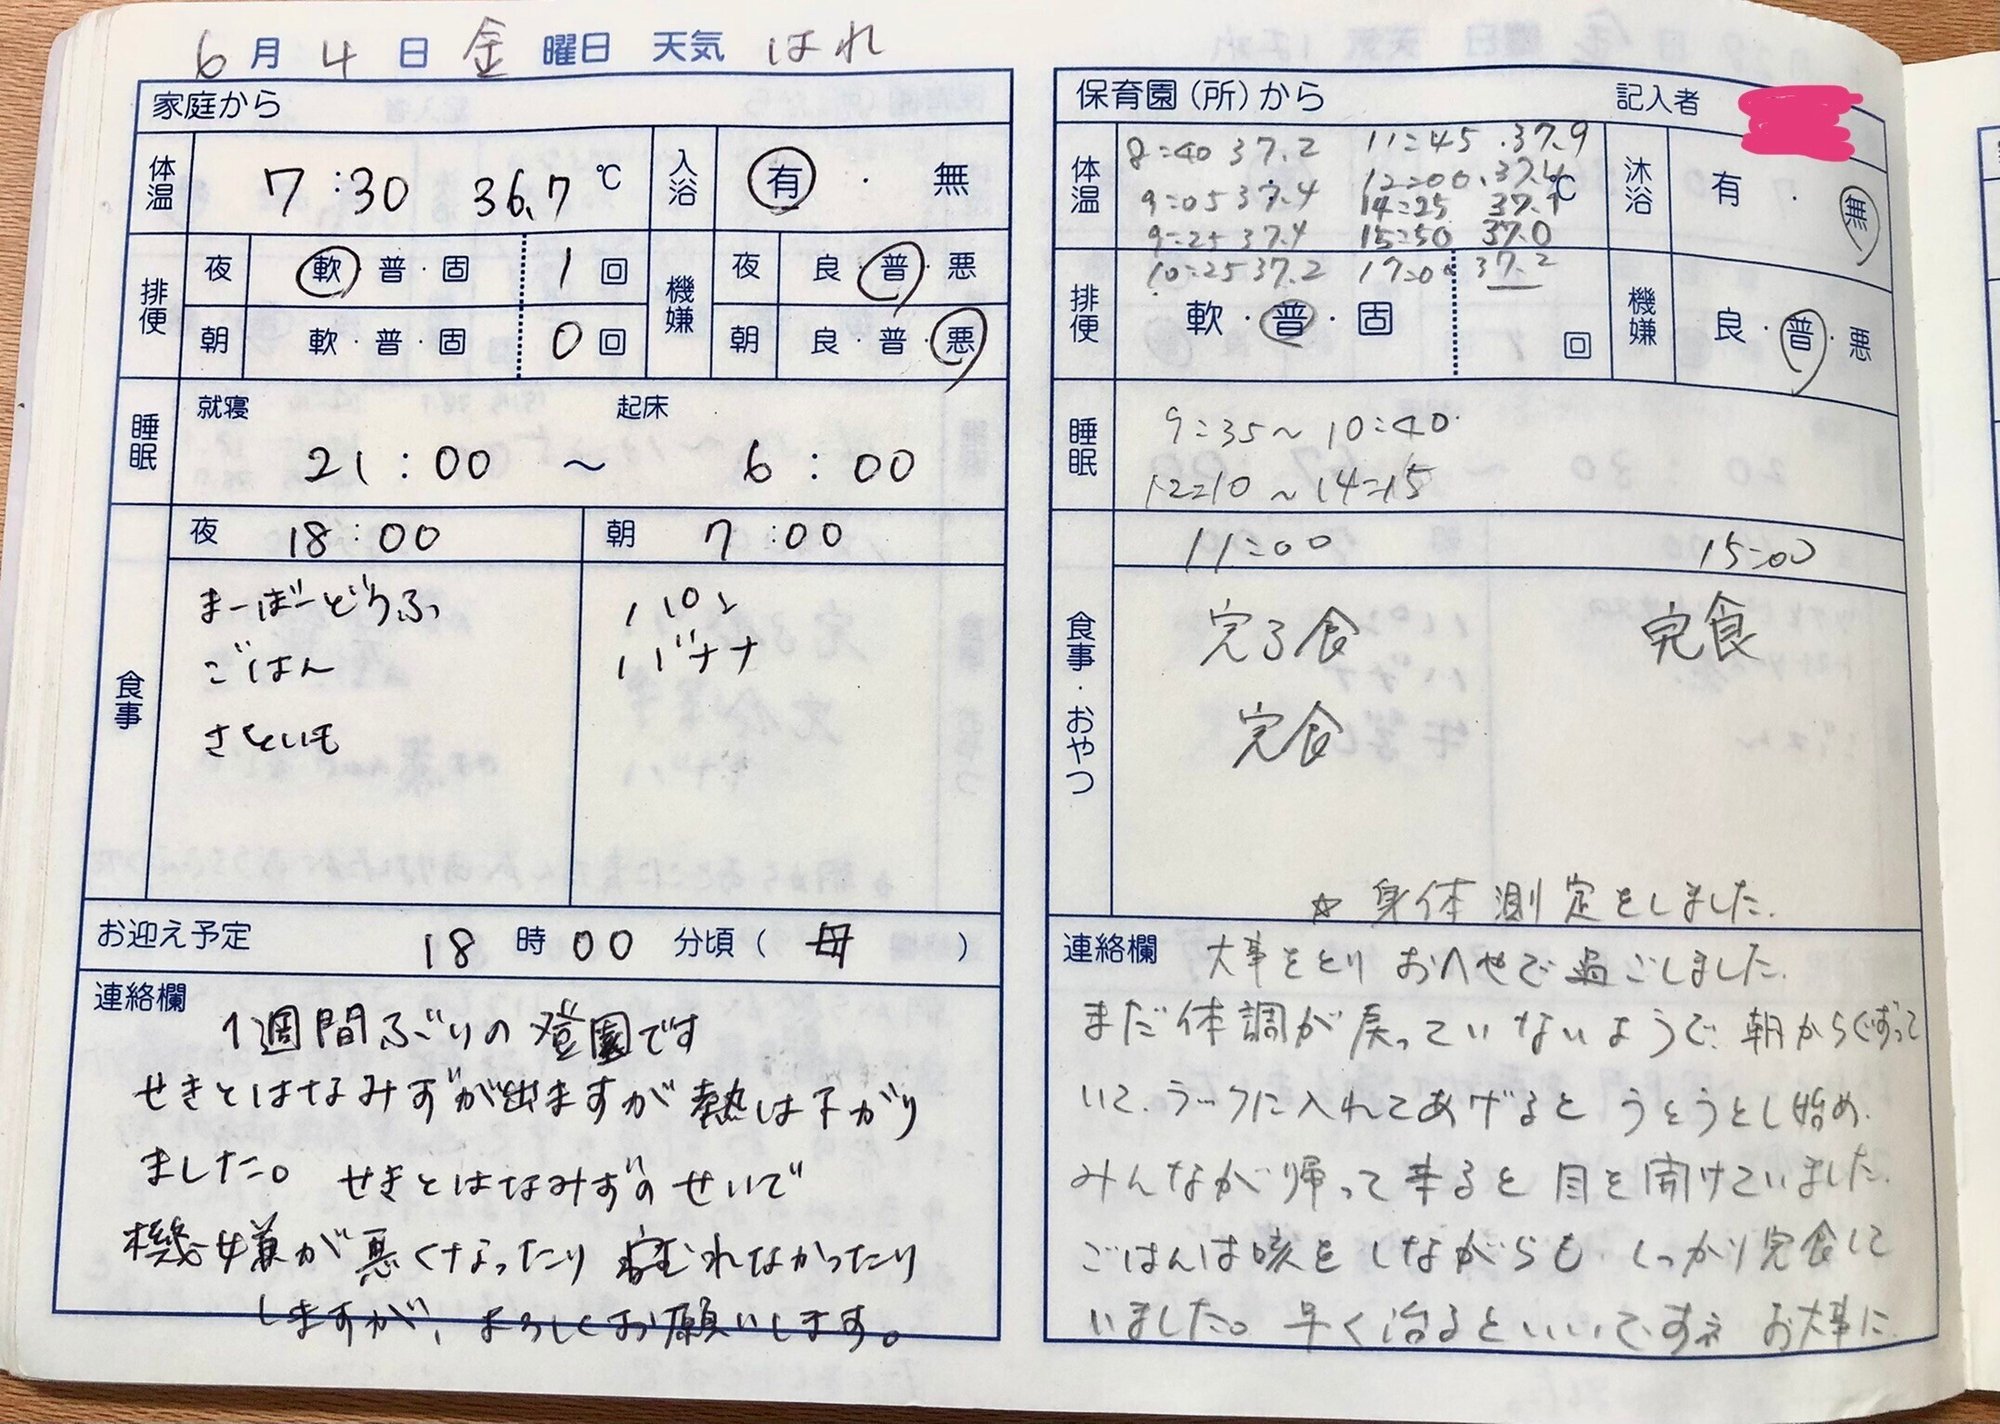 6月4日金曜日 天気 はれ
家庭から
体温 7:30 36.7 ℃ 入浴 有・無
排便 夜 軟・普・固 1回 機嫌 夜 良・普・悪
朝 軟・普・固 0回 朝 良・普・悪
睡眠 就寝 起床
21:00 ~ 6:00
夜 18:00 朝 7:00
食事
まーぼーどうふ パン
ごはん バナナ
さといも
お迎え予定 18時00分頃(母)
連絡欄
1週間ぶりの登園です
せきとはなみずが出ますが熱は下がり
ました。せきとはなみずのせいで
機嫌が悪くなったり ねむれなかったり
しますが、よろしくお願いします。
保育園(所)から 記入者
体温 8:40 37.2 11:45 37.9 ℃ 沐浴 有・無
9:05 37.4 12:00 37.4
9:25 37.4 14:25 37.1
10:25 37.2 15:50 37.0
17:00 37.2
排便 軟・普・固 回 機嫌 良・普・悪
睡眠 9:35~10:40
12:10~14:15
11:00 15:00
食事・おやつ
完了食 完食
完食
☆身体測定をしました.
連絡欄 大事をとり おへやで過ごしました.
まだ体調が戻っていないようで、朝からぐずって
いて、ラックに入れてあげるとうとうとし始め、
みんなが帰って来ると目を開けていました.
ごはんは咳をしながらも、しっかり完食して
いました。早く治るといいですネ お大事に